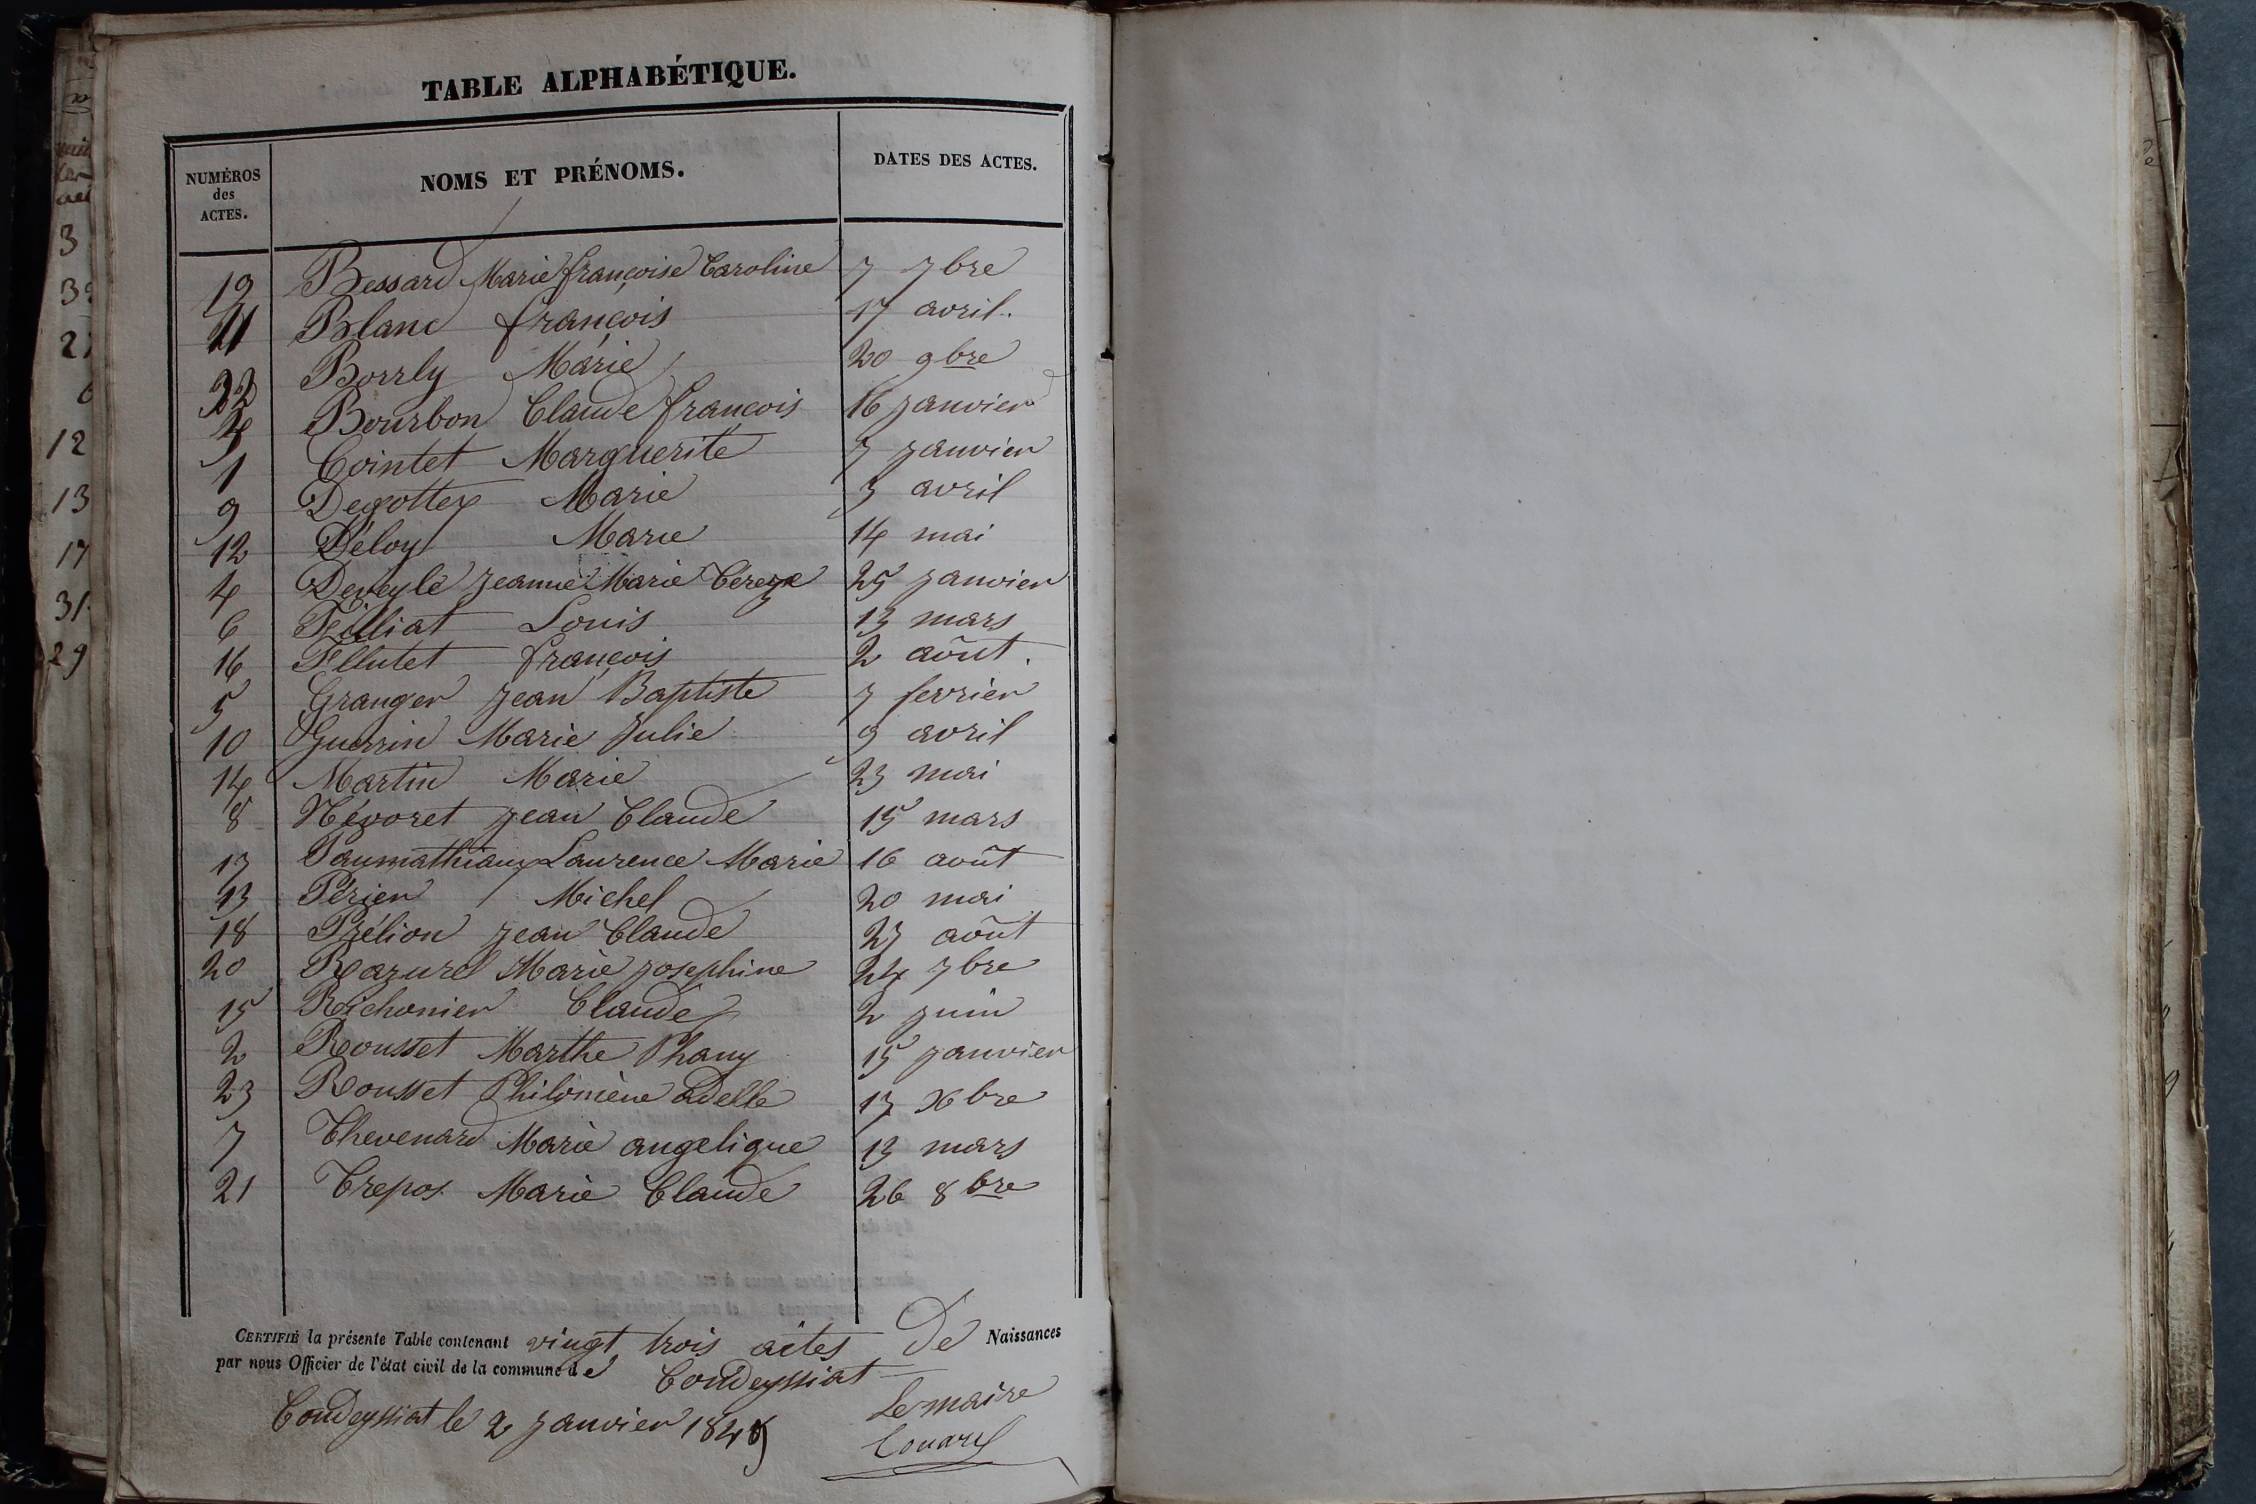 TABLE ALPHABÉTIQUE.
NUMÉROS des ACTES. NOMS ET PRÉNOMS. DATES DES ACTES.
19 Bessard Marie françoise Caroline 7 7bre
11 Blanc françois 17 avril.
22 Borrly Marie 20 9bre
3 Bourbon Claude françois 16 janvier
1 Cointet Marguerite 7 janvier
9 Degottex Marie 3 avril
12 Déloy Marie 14 mai
4 Deveyle Jeanne Marie 25 janvier
6 Filliat Louis 13 mars
16 Fllutet françois 2 août.
5 Granger Jean Baptiste 7 fevrier
10 Guerrin Marie Julie 9 avril
14 Martin Marie 23 mai
8 Névoret Jean Claude 15 mars
17 Laurence Marie 16 août
13 Michel 20 mai
18 Prélion Jean Claude 27 août
20 Razurel Marie josephine 24 7bre
15 Richonier Claude 2 juin
2 Rousset Marthe Phany 15 janvier
23 Rousset Philomène adelle 17 Xbre
7 Thevenard Marie angelique 13 mars
21 Trepos Marie Claude 26 8bre
CERTIFIÉ la présente Table contenant vingt trois actes De Naissances
par nous Officier de l'état civil de la commune de Condeyssiat
Condeyssiat le 2 janvier
Le maire
3
12
13
17
31
29